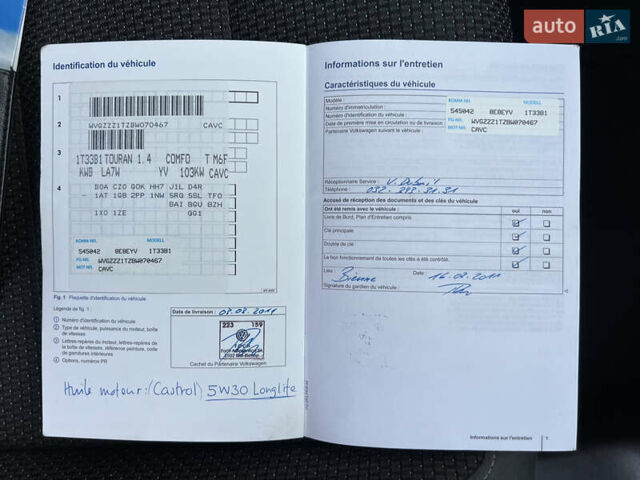 auto RIA
.com
Identification du véhicule
1
WVGZZZ1TZBW070467 CAVC
2
3
1T33B1 TOURAN 1.4 COMFO T M6F
KW9 LA7W YV 103KW CAVC
4
B0A CZ0 G0K HH7 J1L D4R
- 1AT 1GB 2PP 1NW 5RQ 5SL TF0
BAI 8GU 8ZH
1X0 1ZE GG1
KOMM NR. MODELL
545042 8E8EYV 1T33B1
FG-NR. WVGZZZ1TZBW070467
MOT-NR. CAVC
Fig. 1 Plaquette d'identification du véhicule
Légende de fig. 1 :
1 Numéro d'identification du véhicule
2 Type de véhicule, puissance du moteur, boîte
de vitesses
3 Lettres-repères du moteur, lettres-repères de
la boîte de vitesses, référence peinture, code
de garnitures intérieures
4 Options, numéros PR
Date de livraison : 07.02.2011
223 159
Cachet du Partenaire Volkswagen
Huile moteur: (Castrol) 5W30 Longlife
Informations sur l'entretien
Caractéristiques du véhicule
Modèle :
Numéro d'immatriculation :
Numéro d'identification du véhicule :
Date de première mise en circulation ou de livraison :
Partenaire Volkswagen suivant le véhicule :
KOMM NR. MODELL
545042 8E8EYV 1T33B1
FG-NR. WVGZZZ1TZBW070467
MOT-NR. CAVC
Réceptionnaire Service :
Téléphone : 032.
Accusé de réception des documents et des clés du véhicule
Ont été remis avec le véhicule : oui non
Livre de Bord, Plan d'Entretien compris
Clé principale
Double de clé
Le bon fonctionnement de toutes les clés a été contrôlé.
Lieu : Bienne Date : 16.02.2011
Signature du gardien du véhicule :
Informations sur l'entretien 1